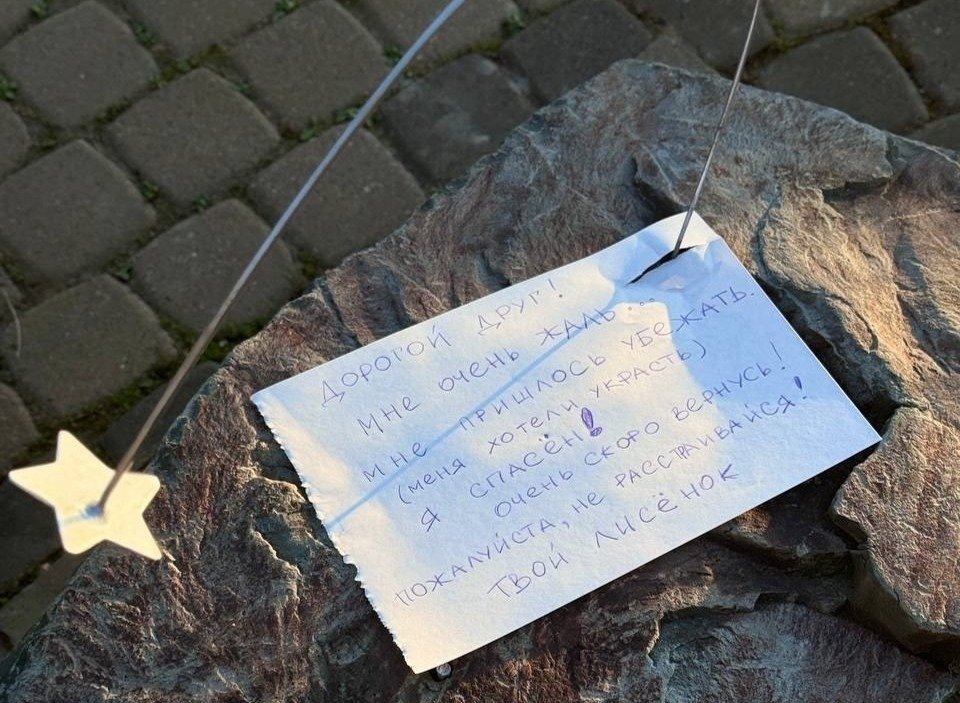 ДОРОГОЙ ДРУГ!
МНЕ ОЧЕНЬ ЖАЛЬ...
МНЕ ПРИШЛОСЬ УБЕЖАТЬ.
(МЕНЯ ХОТЕЛИ УКРАСТЬ)
Я СПАСЁН!
ОЧЕНЬ СКОРО ВЕРНУСЬ!
ПОЖАЛУЙСТА, НЕ РАССТРАИВАЙСЯ!
ТВОЙ ЛИСЁНОК